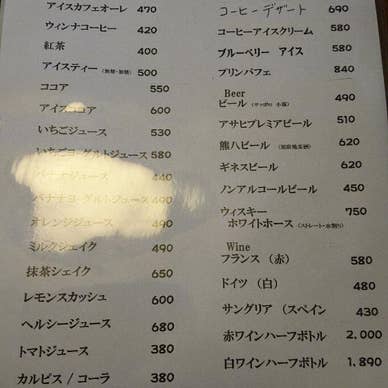 アイスカフェオーレ 470
ウィンナコーヒー 420
紅茶 400
アイスティー (無糖・加糖) 500
ココア 550
アイスココア 600
いちごジュース 530
いちごヨーグルトジュース 580
バナナジュース 440
バナナヨーグルトジュース 490
オレンジジュース 490
ミルクシェイク 490
抹茶シェイク 650
レモンスカッシュ 600
ヘルシージュース 680
トマトジュース 380
カルピス / コーラ 380
コーヒーデザート 690
コーヒーアイスクリーム 580
ブルーベリー アイス 580
プリンパフェ 840
Beer
ビール (サッポロ 小瓶) 490
アサヒプレミアビール 510
熊八ビール 620
ギネスビール 620
ノンアルコールビール 450
ウィスキー 750
ホワイトホース (ストレート・水割り)
Wine
フランス (赤) 580
ドイツ (白) 480
サングリア (スペイン 430
赤ワインハーフボトル 2.000
白ワインハーフボトル 1.890